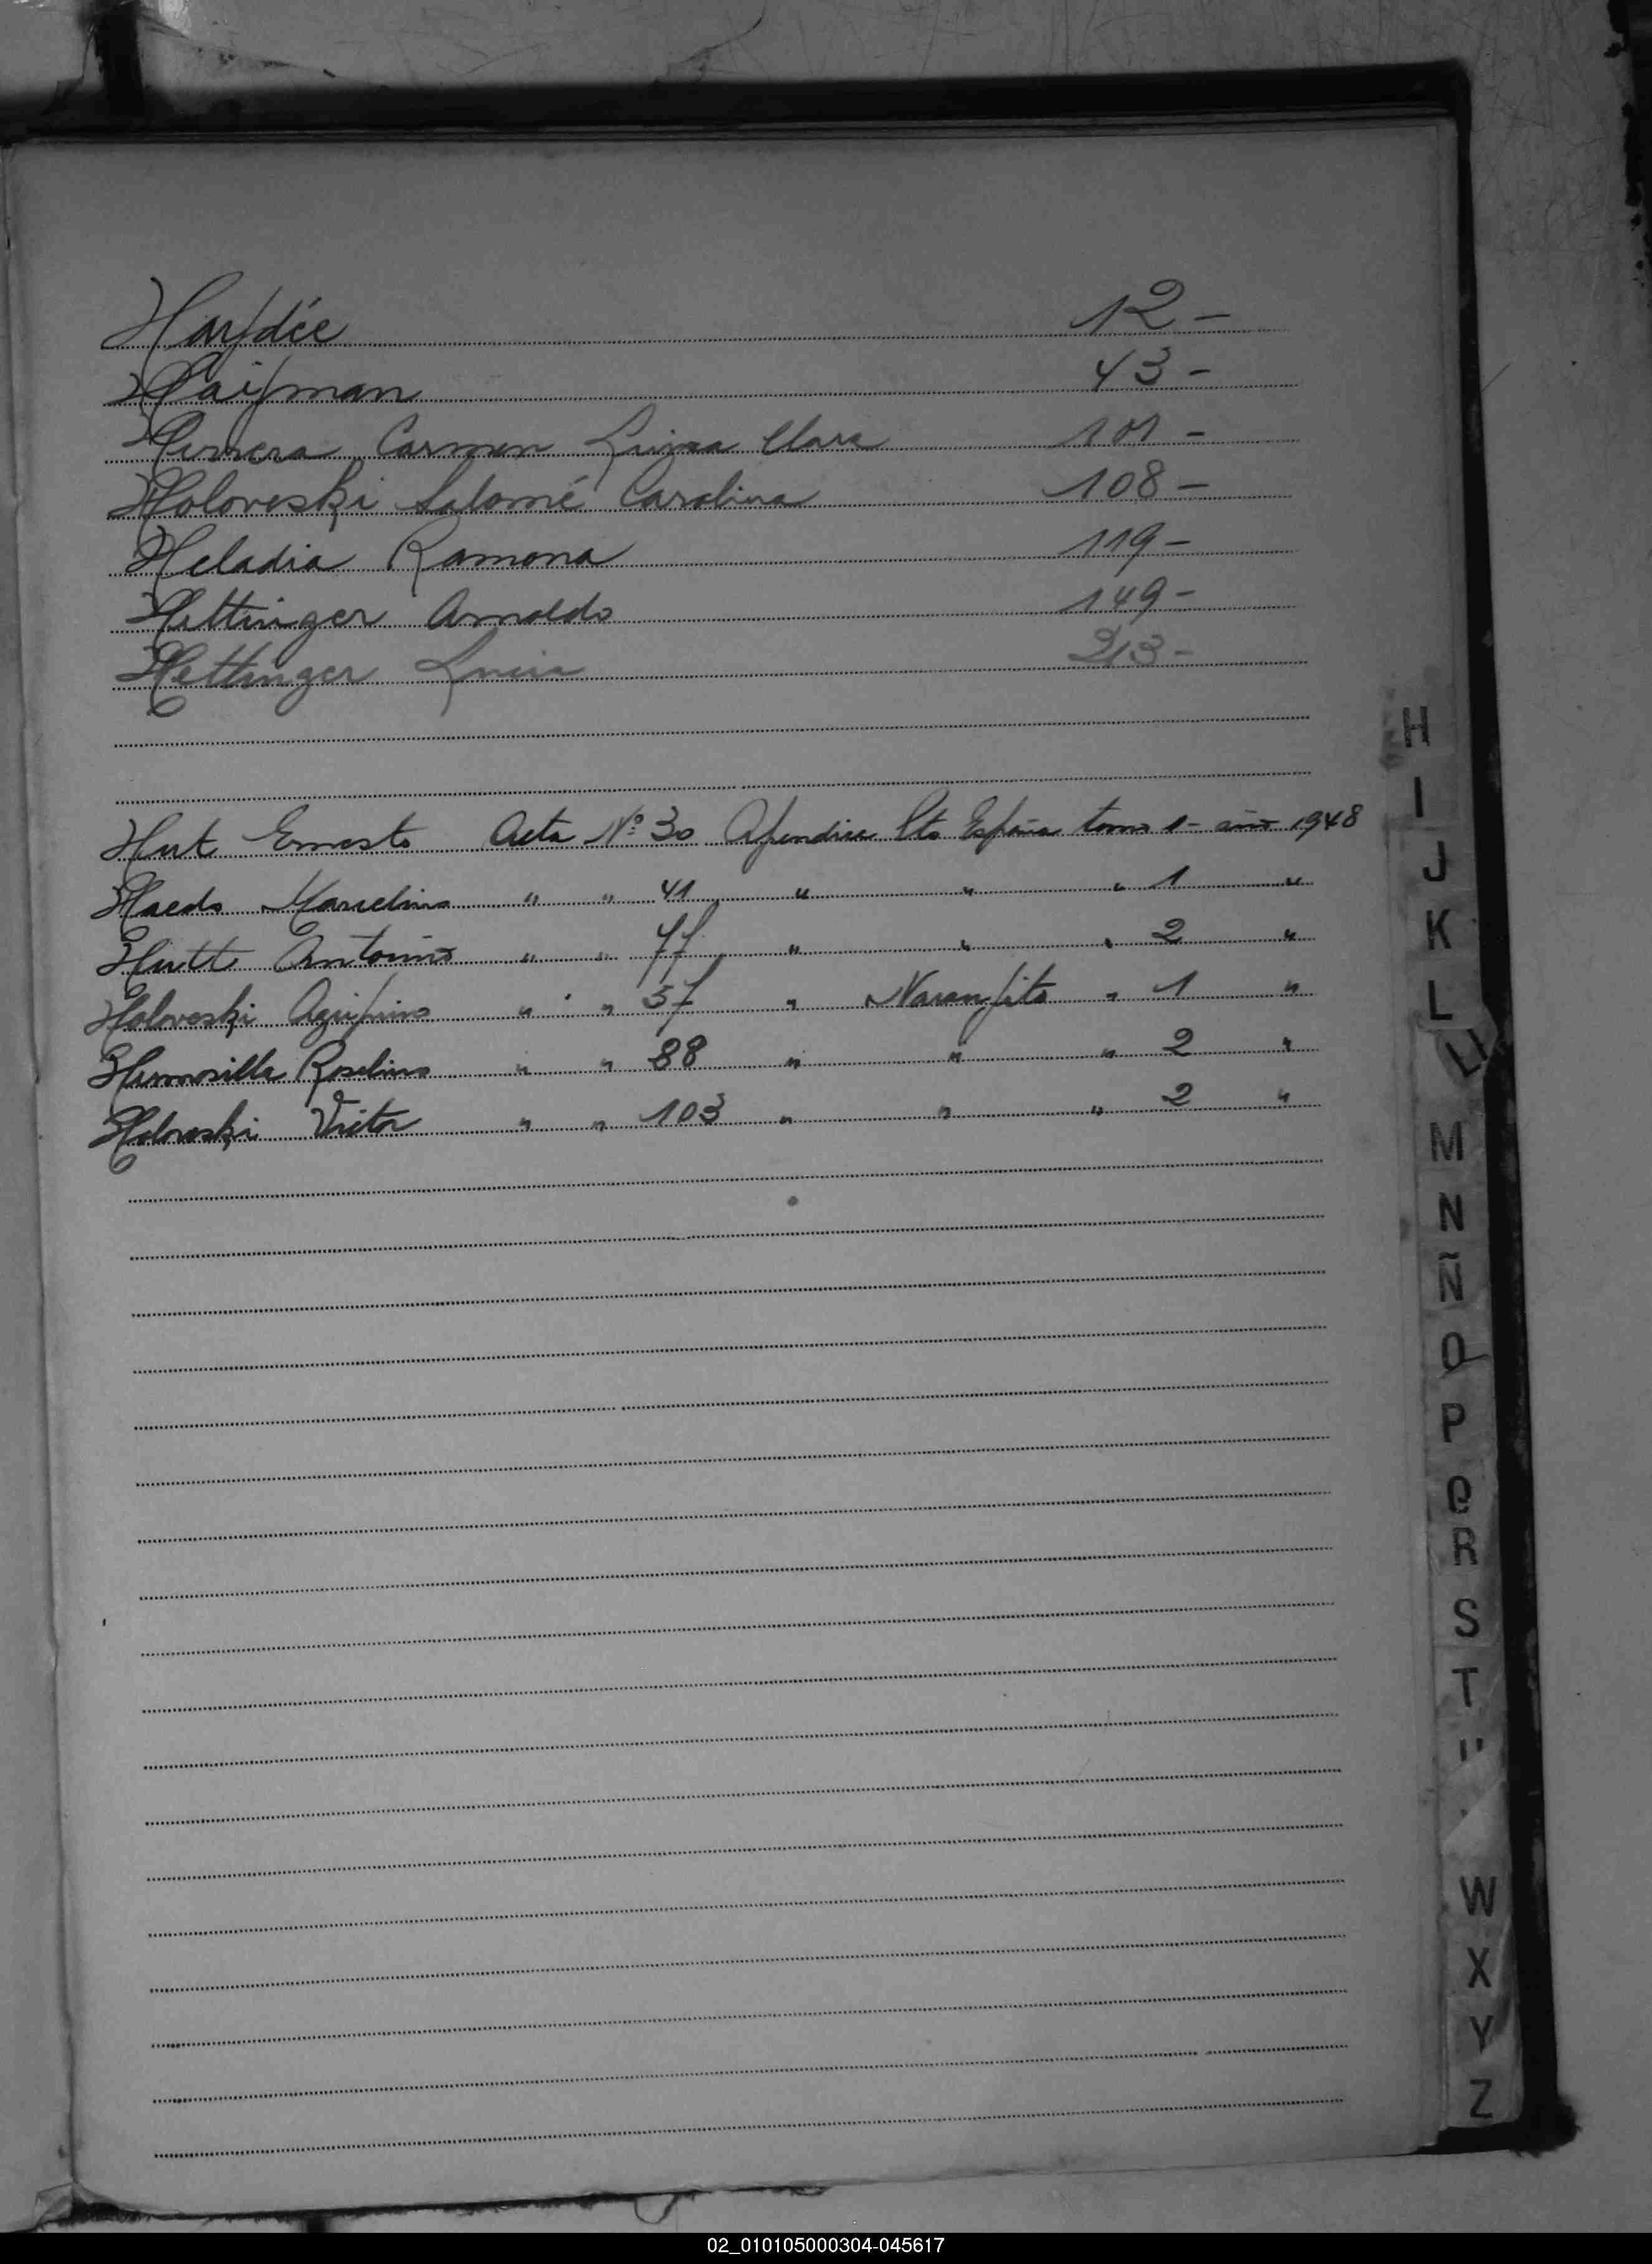 Haydée 12 -
Haifman 43 -
Herrera Carmen Luisa Clara 101 -
Holoveski Salomé Carolina 108 -
Heladia Ramona 119 -
Hettinger Arnoldo 149 -
Hettinger Lucia 213 -
Hut Ernesto Acta Nº 30 Apendice Pto España tomo 1 - año 1948
Haedo Marcelino " " 41 " " " 1 "
Hutt Antonino " " 77 " " " 2 "
Holoveski Agripino " " 57 " Naranjito " 1 "
Hermosilla Roselino " " 88 " " " 2 "
Holoveski Victor " " 103 " " " 2 "
H
I
J
K
L
Ll
M
N
Ñ
O
P
Q
R
S
T
W
X
Y
Z
02_010105000304-045617